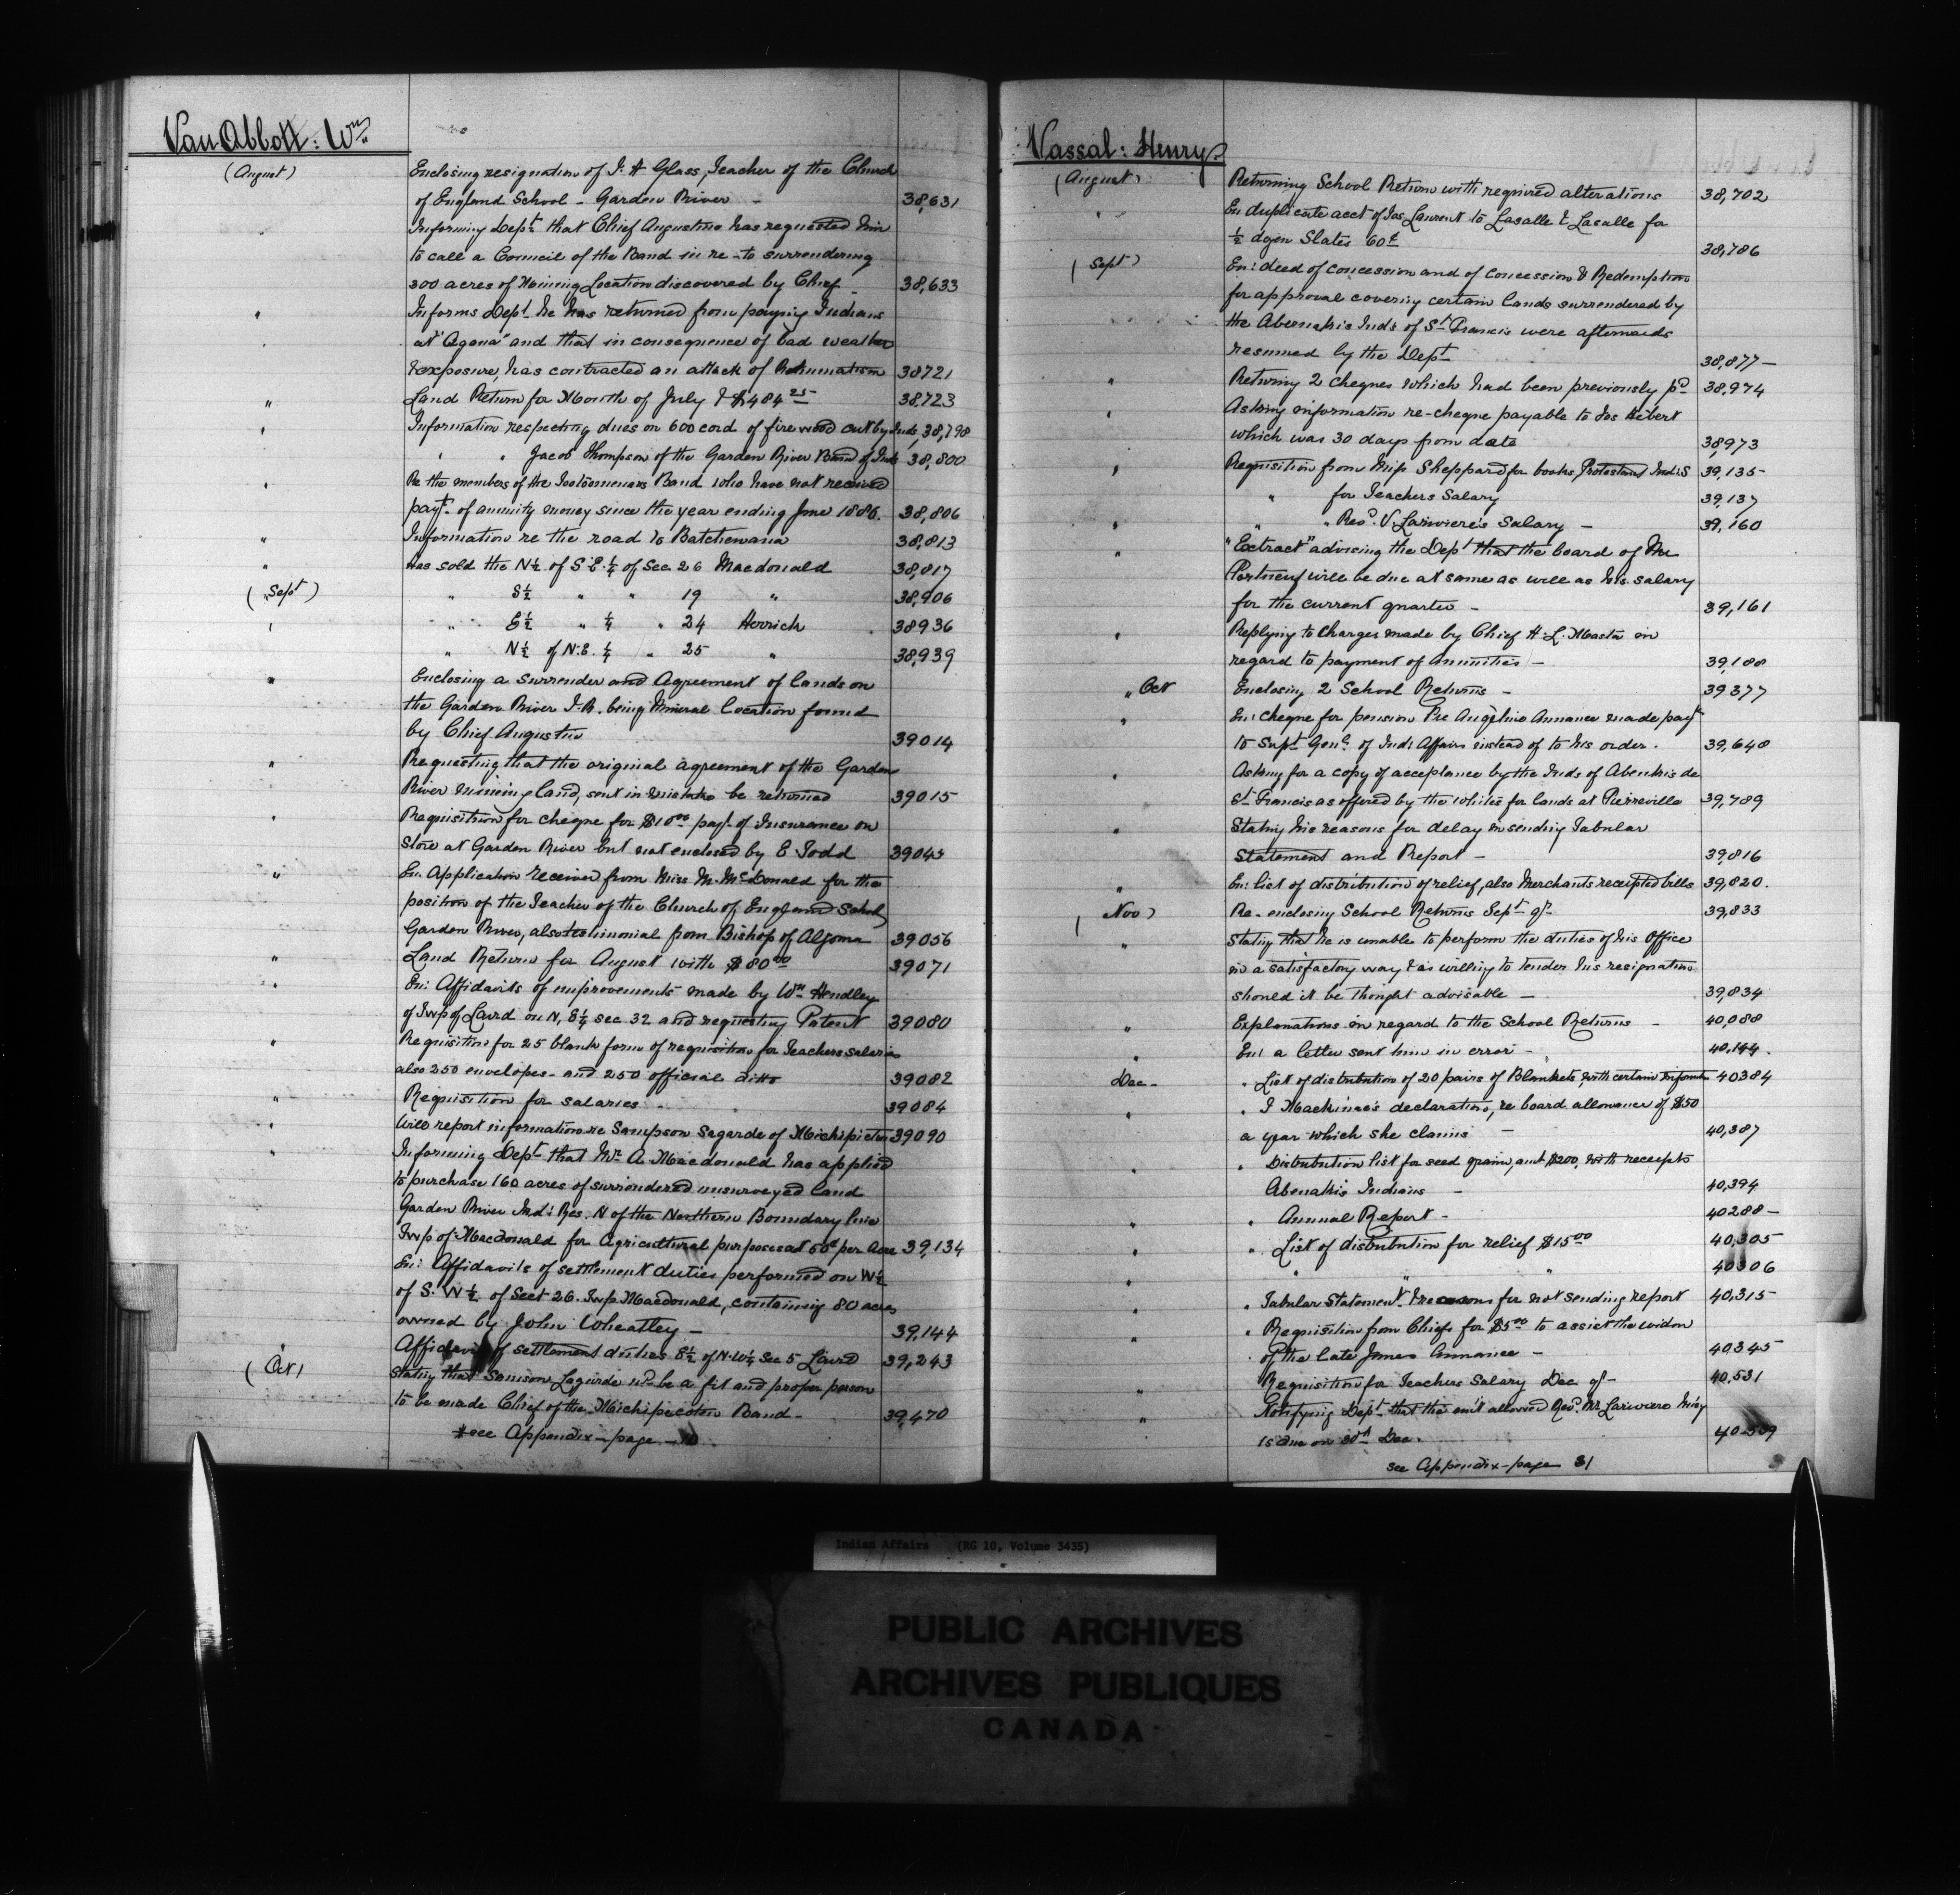 Van Abbott: Wm
(August)
Enclosing resignation of J. H Glass, Teacher of the Church
of England School - Garden River - 38,631
Informing Dept that Chief Augustine has requested him
to call a Council of the Band in re-to surrendering
300 acres of Mining Location discovered by Chief - 38,633
" Informs Dept he has returned from paying Indians
at "Agawa" and that in consequence of bad weather
& exposure, has contracted an attack of Rheumatism 38721
" Land Return for Month of July & $484 25 38,723
" Information respecting dues on 600 cord of fire wood cut by Inds, 38,798
" " Jacob Thompson of the Garden River Band of Inds 38,800
" Re the members of the Band who have not received
payt of annuity money since the year ending June 1886. 38,806
" Information re the road to Batchewana 38,813
" Has sold the N½ of S.E. ¼ of Sec 26 Macdonald 38,817
( Sept ) " S½ " " 19 " 38,906
" E½ " ¼ " 24 Herrick 38936
" N½ of N.E. ¼ " 25 " 38,939
" Enclosing a Surrender and Agreement of lands on
the Garden River I.R. being Mineral location found
by Chief Augustin 39014
" Requesting that the original agreement of the Garden
River mining land, sent in mistake be returned 39015
" Requisition for cheque for $10 00 payt of Insurance on
Store at Garden River but not enclosed by E Todd 39045
" En: Application received from Miss M. McDonald for the
position of the Teacher of the Church of England School
Garden River, also testimonial from Bishop of Algoma 39056
" Land Return for August with $80 00 39071
" En: Affidavits of improvements made by Wm Hendley
of Twp of Laird on N, E¼ sec 32 and requesting Patent 39080
" Requisition for 25 blank form of requisition for Teachers salaries
also 250 envelopes - and 250 official ditto 39082
" Requisition for salaries 39084
" Will report information re Sampson Legarde of Michipicton 39090
" Informing Dept that Mr A Macdonald has applied
to purchase 160 acres of surrendered unsurveyed land
Garden River Ind: Res. N of the Northern Boundary line
Twp of Macdonald for Agricultural purposes at 50¢ per Acre 39,134
En: Affidavits of settlement duties performed on W½
of S. W¼ of Sect 26. Twp Macdonald, containing 80 acres
owned by John Wheatley - 39,144
Affidavit of settlement duties E½ of N.W¼ Sec 5 Laird 39,243
( Oct ) Stating that Samson Legarde wd be a fit and proper person
to be made Chief of the Michipecoton Band - 39,470
see Appendix - page - 10
Vassal: Henry
(August) Returning School Return with required alterations 38,702
" En duplicate acct of Jos Laurent to Lasalle & Lasalle for
½ dozen Slates 60¢ 38,786
( Sept ) En: deed of concession and of Concession & Redemption
for approval covering certain lands surrendered by
the Abernakis Inds of St Francis were afterwards
resumed by the Dept 38,877 -
" Returning 2 cheques which had been previously pd 38,974
" Asking information re-cheque payable to Jos Hebert
which was 30 days from date 38,973
" Requisition from Miss Sheppard for books, Protestant Inds 39,135 -
" for Teachers Salary 39,137
" " Revd. V. Lariviere's Salary - 39,160
" "Extract" advising the Dept that the board of Mr
Portneuf will be due at same as well as his salary
for the current quarter - 39,161
" Replying to charges made by Chief H. L. Masta in
regard to payment of Annuities - 39,188
" Oct Enclosing 2 School Returns - 39377
" En: cheque for pension Re Angéline Annance made payt
to Supt Genl of Ind: Affairs instead of to his order. 39,648
" Asking for a copy of acceptance by the Inds of Abenkis de
St Francis as offered by the Whites for lands at Pierreville 39,789
" Stating his reasons for delay in sending Tabular
Statement and Report - 39,816
" En: list of distribution of relief, also Merchants receipted bills 39,820.
( Nov ) Re-enclosing School Returns Sept qr 39,833
" Stating that he is unable to perform the duties of his Office
in a satisfactory way & is willing to tender his resignation
should it be thought advisable - 39,834
" Explanations in regard to the School Returns - 40,088
" En: a letter sent him in error - 40,144.
Dec - " List of distribution of 20 pairs of Blankets, with certain information 40384
" " declaration, re board allowance of $50
a year which she claims - 40,387
" " Distribution list for seed grain, amt $200, with receipts
Abenakis Indians - 40,394
" " Annual Report - 40288 -
" " List of distribution for relief $15 00 40,305 -
" " " " 40306
" " Tabular Statement & reasons for not sending report 40,315 -
" " Requisition from Chiefs for $5 00 to assist the widow
of the late James Annance - 40345
" Requisition for Teachers Salary Dec qr - 40,531
" Notifying Dept that the amt allowed Revd. Mr Lariviere Missy
is due on 30th Dec. 40-509
see Appendix - page 31
Indian Affairs (RG 10, Volume 3435)
PUBLIC ARCHIVES
ARCHIVES PUBLIQUES
CANADA